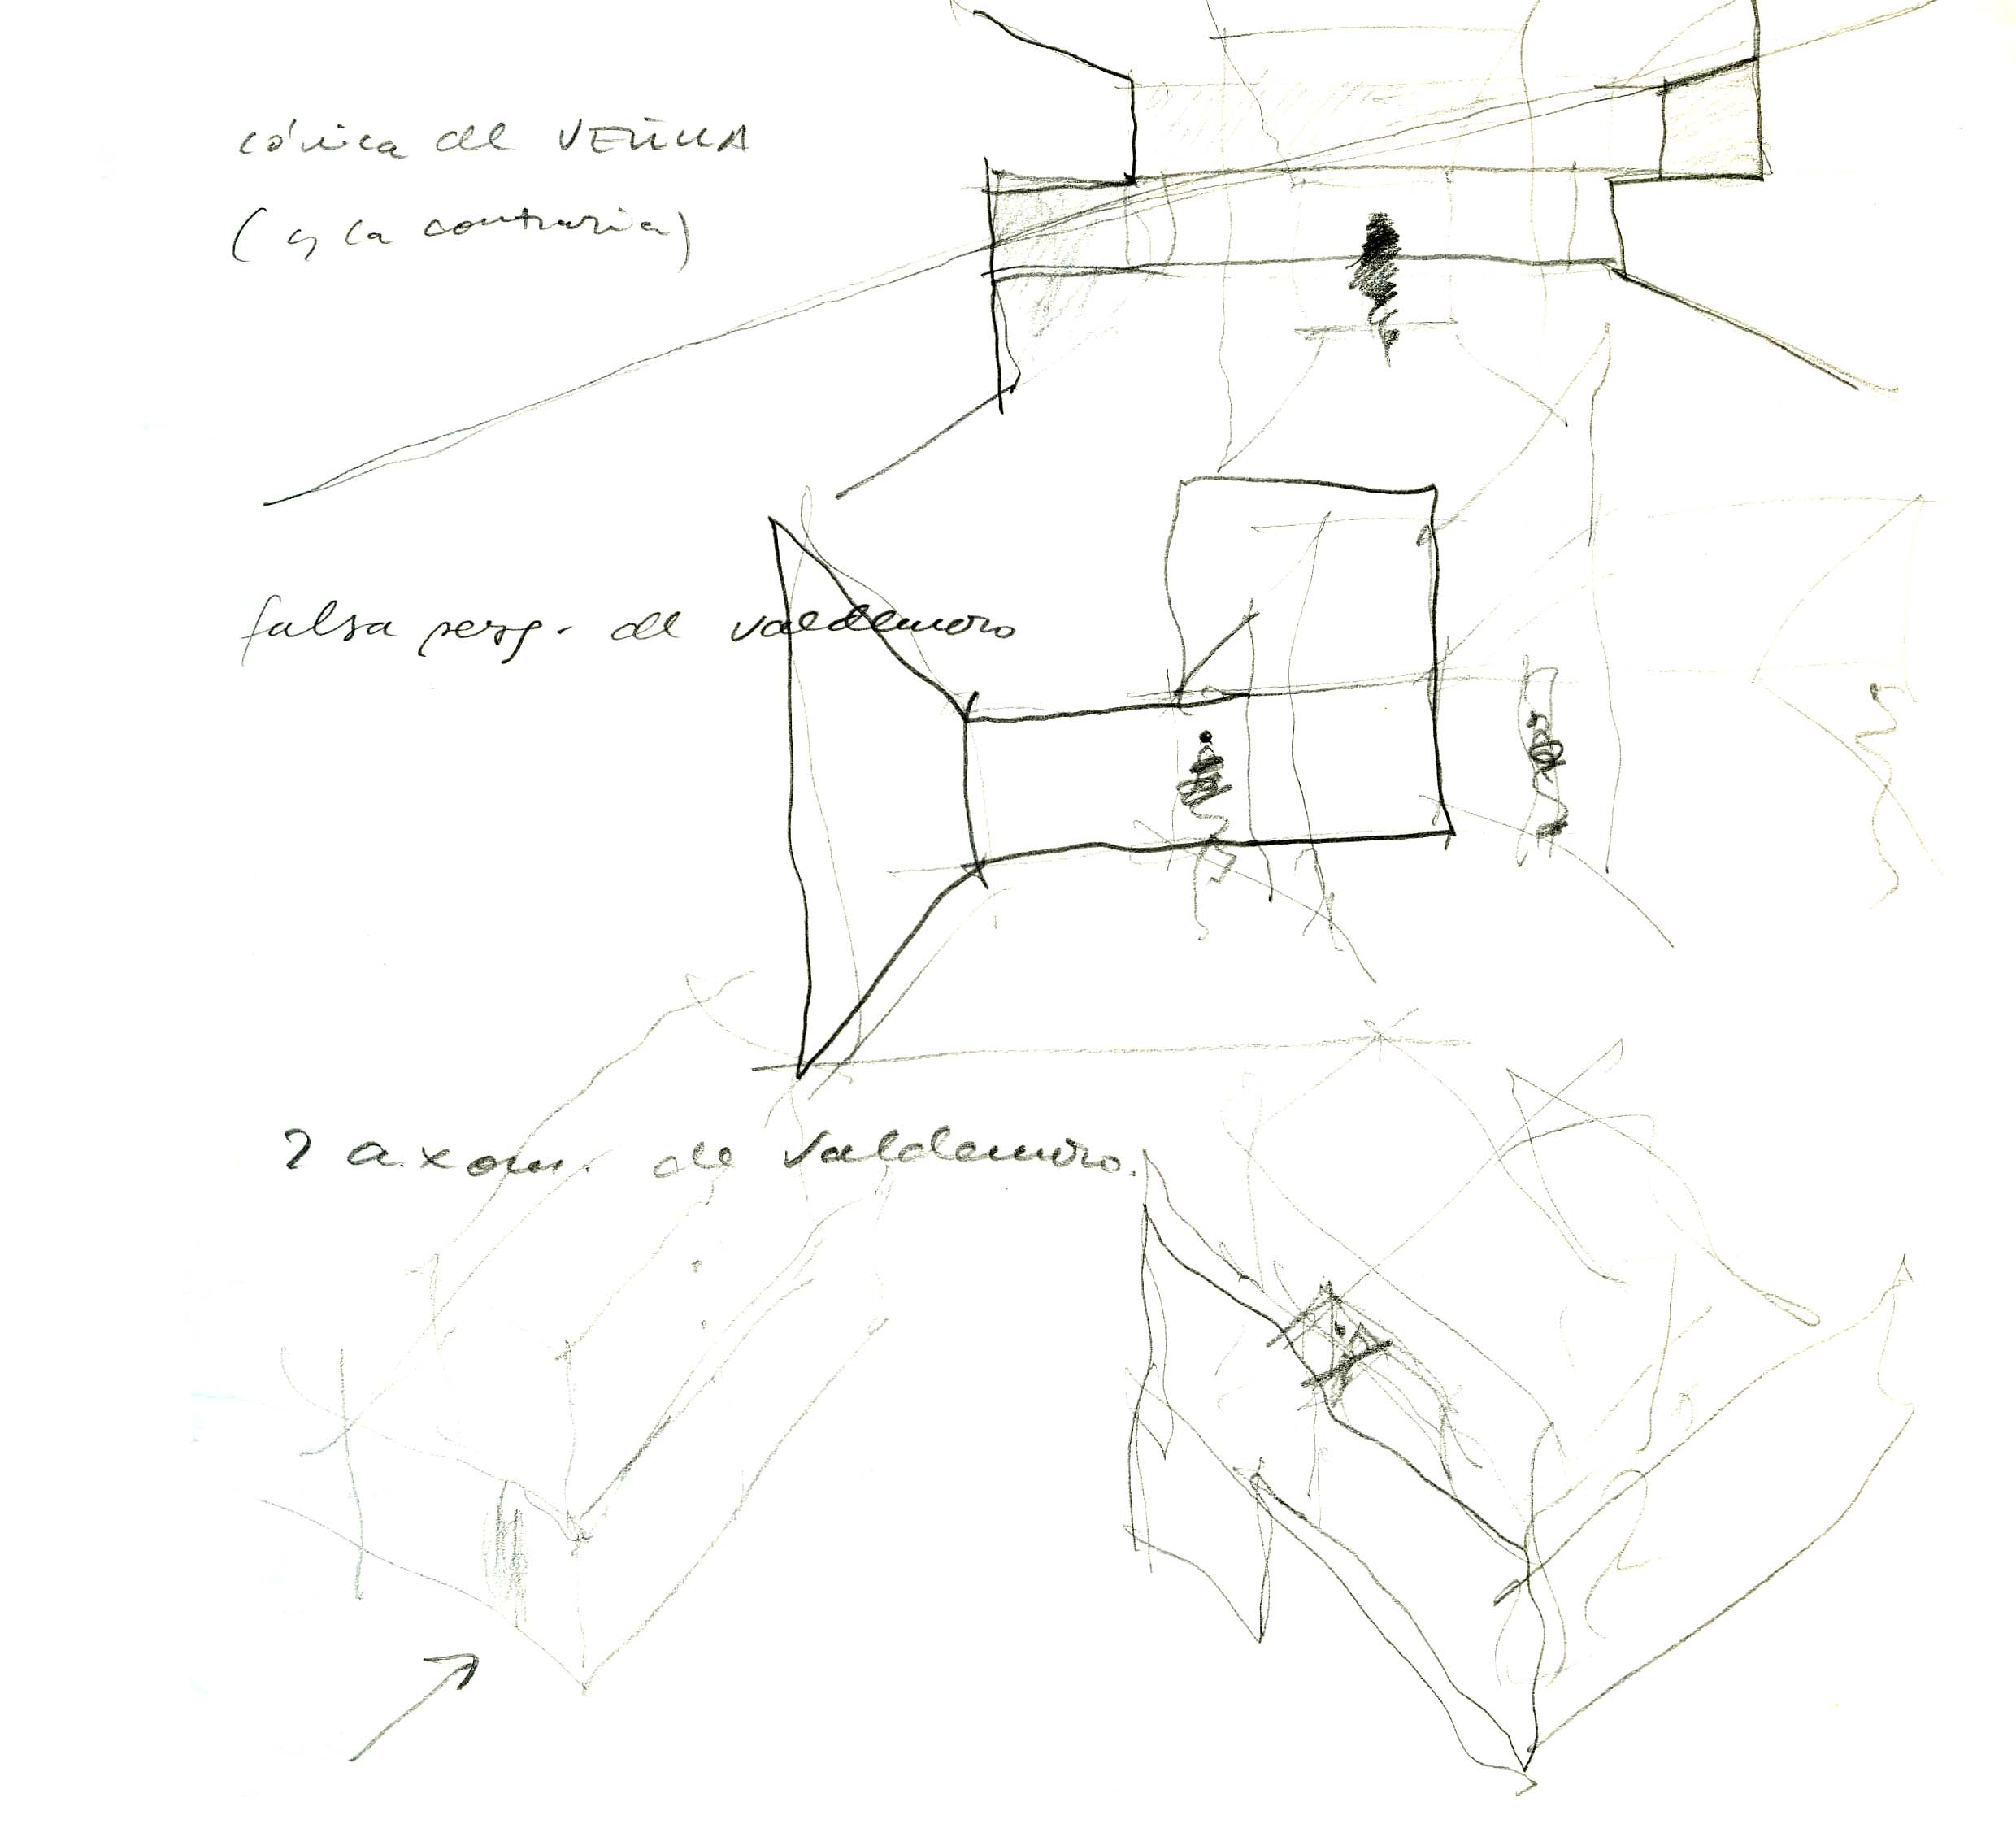 cónica de VEIILLA
(y la contraria)
falsa persp. de valdemoro
2 axom. de Valdemoro.